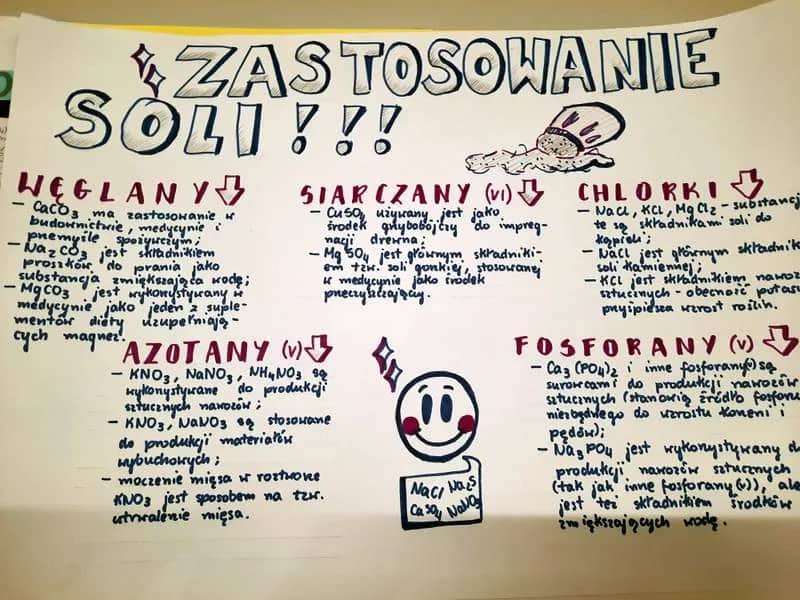 ZASTOSOWANIE
SOLI!!!
WĘGLANY
- CaCO3 ma zastosowanie w
budownictwie, medycynie i
przemyśle spożywczym;
- Na2CO3 jest składnikiem
proszków do prania jako
substancja zmiększająca wodę;
- MgCO3 jest wykorzystywany w
medycynie jako jeden z suple-
mentów diety uzupełniają-
cych magnez.
SIARCZANY (VI)
- CuSO4 używany jest jako
środek grzybobójczy do impreg-
nacji drewna;
- MgSO4 jest głównym składniki-
em tzw. soli gorzkiej, stosowanej
w medycynie jako środek
przeczyszczający.
CHLORKI
- NaCl, KCl, MgCl2 - substancj
te są składnikami soli do
kąpieli;
- NaCl jest głównym składnik
soli kamiennej;
- KCl jest składnikiem nawoz
sztucznych - obecność potas
przyśpiesza wzrost roślin.
AZOTANY (V)
- KNO3, NaNO3, NH4NO3 są
wykorzystywane do produkcji
sztucznych nawozów;
- KNO3, NaNO3 są stosowane
do produkcji materiałów
wybuchowych;
- moczenie mięsa w roztworze
KNO3 jest sposobem na tzw.
utrwalenie mięsa.
FOSFORANY (V)
- Ca3(PO4)2 i inne fosforany(v) są
surowcami do produkcji nawozów
sztucznych (stanowią źródło fosforu
niezbędnego do wzrostu korzeni i
pędów);
- Na3PO4 jest wykorzystywany d
produkcji nawozów sztucznych
(tak jak inne fosforany(v)), ale
jest też składnikiem środków
zmiększających wodę.
NaCl Na2S
CaSO4 NaNO3